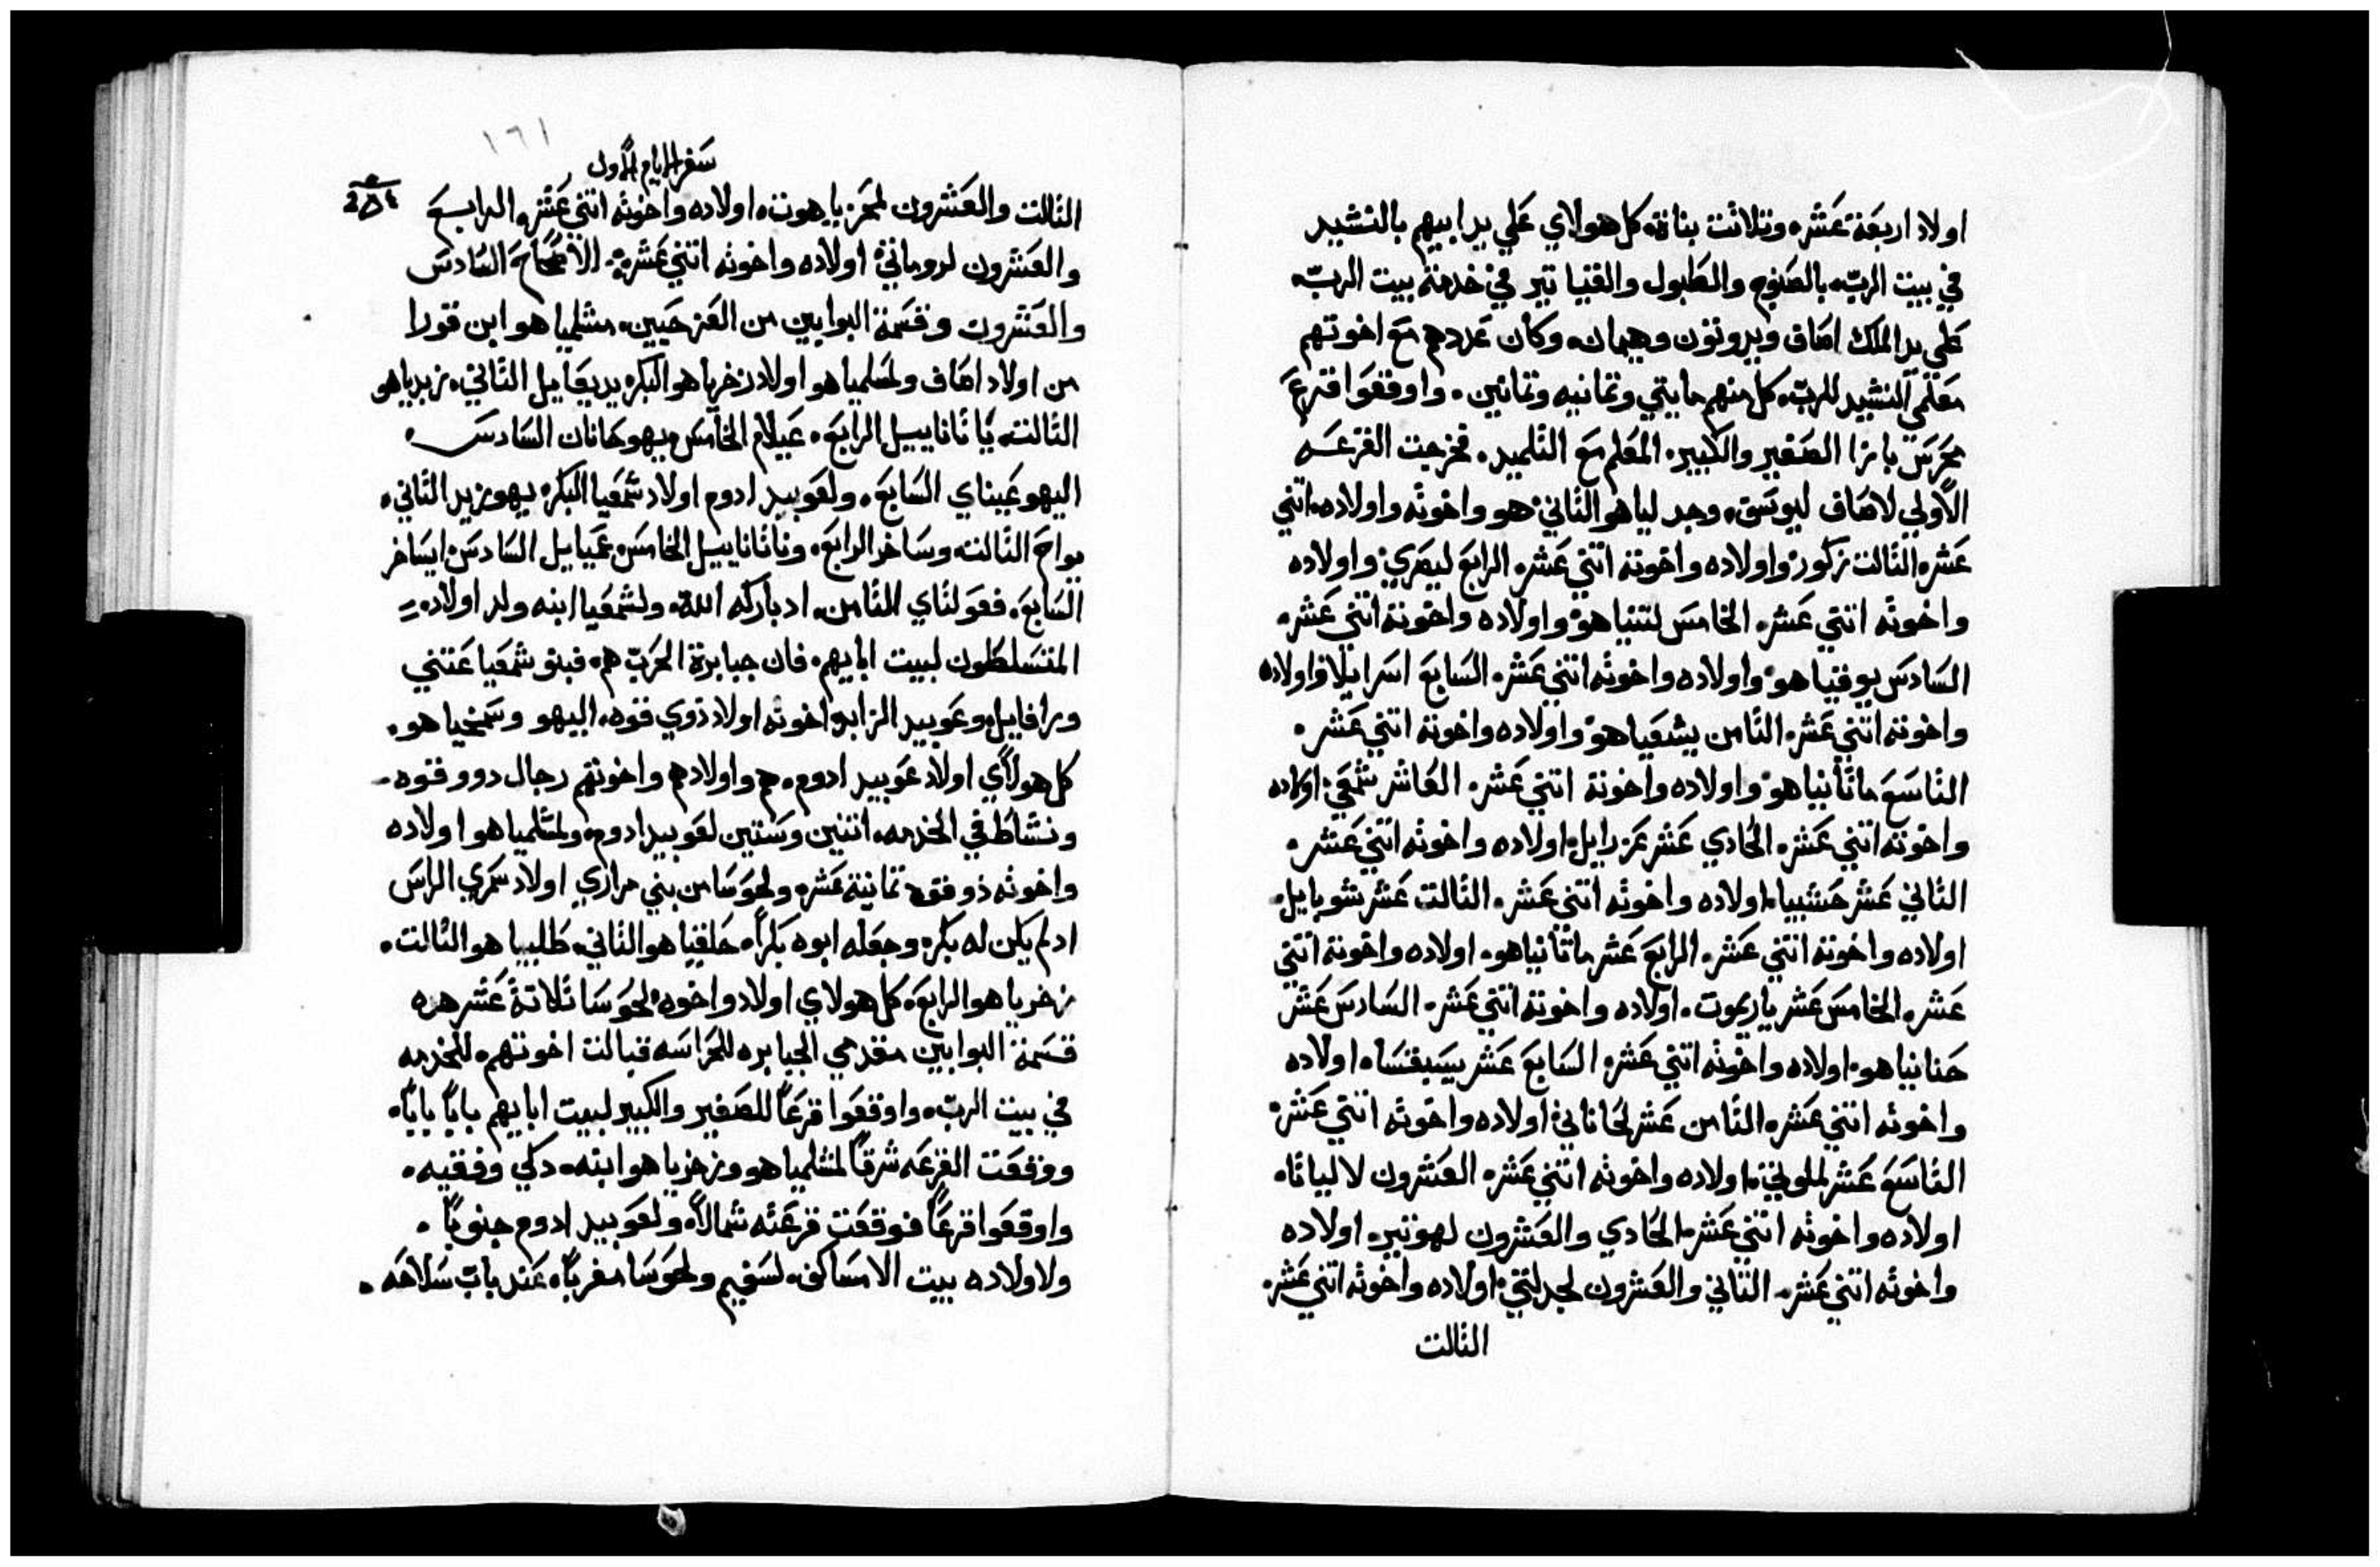 اولاد اربعة عشر، وتلاتت بناة، كل هولاي علي يد ابيهم بالنشيد
في بيت الربّ، بالصنوج والطبول والقتيا تير في خدمة بيت الربّ،
علي يد الملك اصاف ويدوتون وهيمان، وكان عددهم مع اخوتهم
معلمي النشيد للربّ، كل منهم مايتي وتمانيه وتمانين. واوقعوا قرع
محرس بازا الصغير والكبير، المعلم مع التلميد. فخرجت القرعه
الأولي لاصاف ليوسق، وجد لياهو التاني، هو واخوته واولاده، اتني
عشر، التالت زكور، واولاده واخوته اتني عشر، الرابع ليصري، واولاده
واخوته اتني عشر. الخامس لنتنياهو، واولاده واخوته اتني عشر.
السادس بوقياهو، واولاده واخوته اتني عشر. السابع اسرايلا، واولاده
واخوته اتني عشر، التامن يشعياهو، واولاده واخوته اتني عشر.
التاسع ماتانياهو، واولاده واخوته اتني عشر. العاشر شمعي، اولاده
واخوته اتني عشر. الحادي عشر عزرايل، اولاده واخوته اتني عشر.
التاني عشر حشبيا، اولاده واخوته اتني عشر. التالت عشر شوبايل.
اولاده واخوته اتني عشر. الرابع عشر ماتانياهو. اولاده واخوته اتني
عشر. الخامس عشر ياريموت. اولاده واخوته اتني عشر. السادس عشر
حنانياهو، اولاده واخوته اتني عشر، السابع عشر يسبقسا، اولاده
واخوته اتني عشر، التامن عشر لحاناني، اولاده واخوته اتني عشر،
التاسع عشر لملوتي، اولاده واخوته اتني عشر، العشرون لالياتا.
اولاده واخوته اتني عشر، الحادي والعشرون لهوتير، اولاده
واخوته اتني عشر. التاني والعشرون لجدلتي، اولاده واخوته اتني عشر.
التالت
١٦١
سفر الايام الأول
التالت والعشرون لمحزياهوت، اولاده واخوته اتني عشر، والرابع
والعشرون لروماني، اولاده واخوته اتني عشر، الاصحاح السادس
والعشرون وقسمة البوابين من القرحيين، مشلميا هو ابن قورا
من اولاد اصاف ولمسلمياهو اولاد زخرياهو البكر، يديعايل التاني، زبدياهو
التالت، ياتانايييل الرابع. عيلام الخامس يهوحانان السادس.
اليهوعيناي السابع. ولعوبيد ادوم اولاد شمعيا البكر، يهوزيد التاني،
يواح التالت، وساخر الرابع، وناتاناييل الخامس، عميايل السادس، ايساخر
السابع. فعولتاي التامن، اد باركه الله، ولشمعيا ابنه ولد اولاد،
المتسلطون لبيت ابايهم، فان جبابرة الحرب هم، فبنو شمعيا عتني
ورافاييل وعوبيد الزابد واخوته اولاد ذوي قوه، اليهو وسمخياهو.
كل هولاي اولاد عوبيد ادوم. هم واولادهم واخوتهم رجال دوو قوه
ونشاط في الخدمه، اتنين وستين لعوبيد ادوم، ولمشلمياهو اولاده
واخوته ذو قوه تمانية عشر، ولحوسا من بني مراري اولاد شمري الراس
ادلم يكن له بكر، وجعله ابوه بكراً، حلقياهو التاني، طلبياهو التالت.
زخرياهو الرابع، كل هولاي اولاد واخوه، لحوسا تلاتة عشر هده
قسمة البوابين مقدمي الجبابره للحراسه قبالت اخوتهم، للخدمه
في بيت الربّ، واوقعوا قرعاً للصغير والكبير لبيت ابايهم باباً باباً،
ووقعت القرعه شرقاً لمشلمياهو وزخرياهو ابنه، دكي وفقيه.
واوقعوا قرعاً فوقعت قرعته شمالاً، ولعوبيد ادوم جنوباً.
ولاولاده بيت الامساكف، لسفيم ولحوسا مغرباً، عند باب سلاخه.